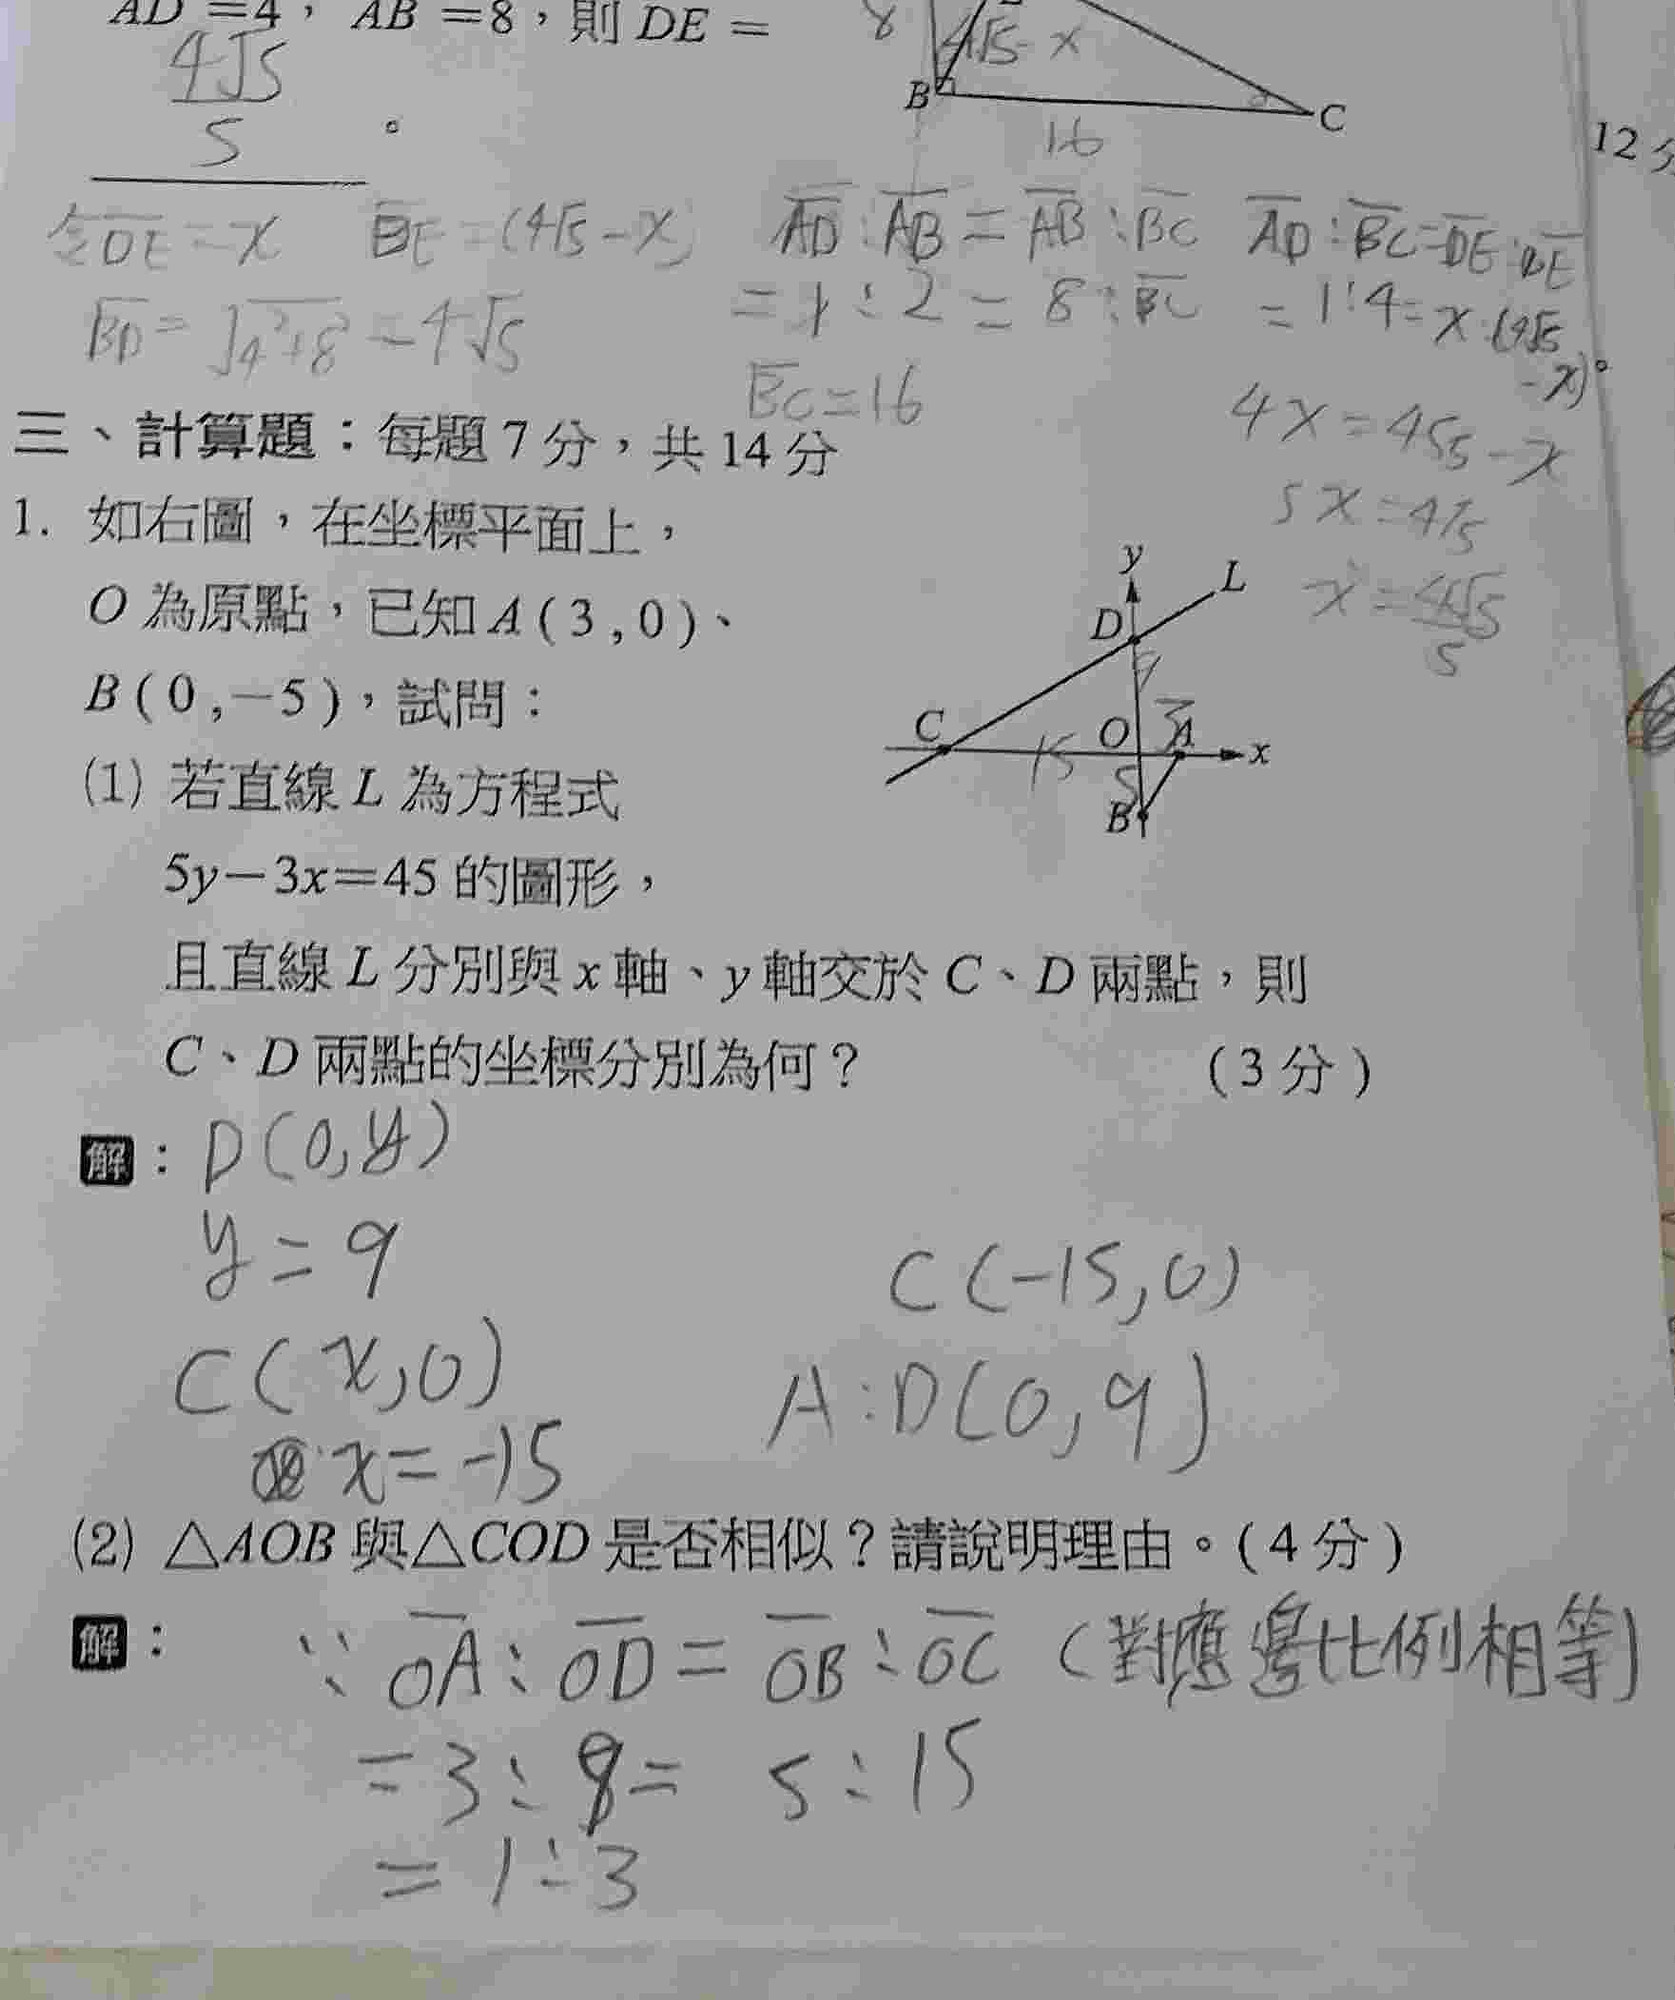 AD=4，AB=8，則DE=
4√5
5 。
8
4√5-x
B
C
16
12分
令DE=x BE=(4√5-x) AD:AB=AB:BC AD:BC=DE:BE
BD=√4²+8²=4√5 =1:2=8:BC =1:4=x:(4√5-x)
BC=16
4x=4√5-x
5x=4√5
x=4√5
5
三、計算題：每題7分，共14分
1. 如右圖，在坐標平面上，
O為原點，已知A(3,0)、
B(0,-5)，試問：
y
L
D
9
C
15
O
3
A
x
5
B
(1) 若直線L為方程式
5y-3x=45的圖形，
且直線L分別與x軸、y軸交於C、D兩點，則
C、D兩點的坐標分別為何？ (3分)
解：D(0,y)
y=9
C(-15,0)
C(x,0)
A:D(0,9)
x=-15
(2) △AOB與△COD是否相似？請說明理由。(4分)
解：∵OA:OD=OB:OC (對應邊比例相等)
=3:9=5:15
=1:3